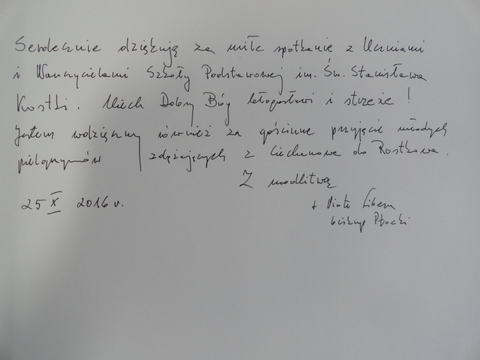 Serdecznie dziękuję za miłe spotkanie z Uczniami
i Nauczycielami Szkoły Podstawowej im. Św. Stanisława
Kostki. Niech Dobry Bóg błogosławi i strzeże!
Jestem wdzięczny również za gościnne przyjęcie młodych
pielgrzymów zdążających z Ciechanowa do Rostkowa.
Z modlitwą
25 X 2016 r.
+ Piotr Libera
biskup Płocki